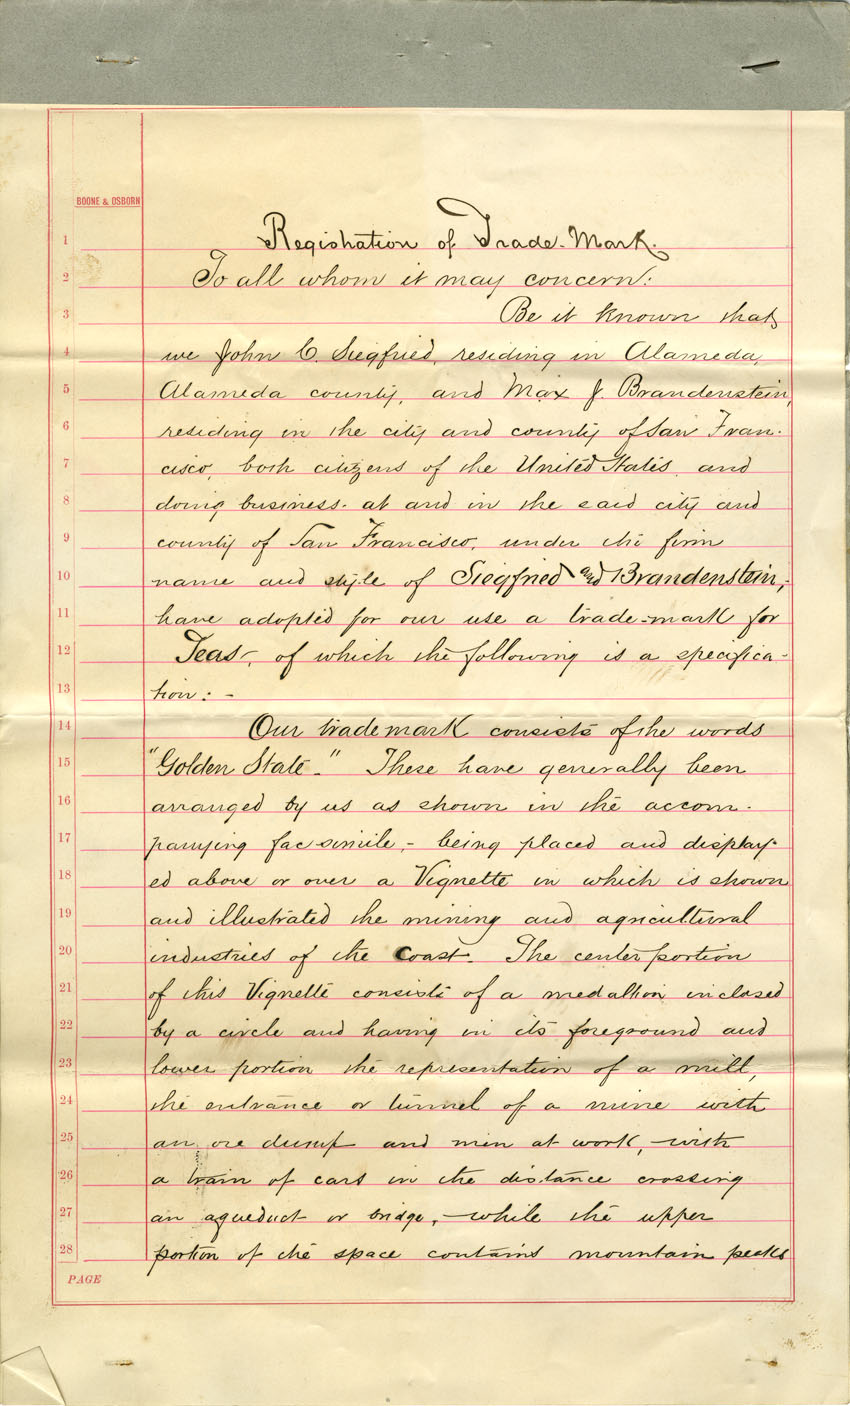 BOONE & OSBORN
1 Registration of Trade-Mark.
2 To all whom it may concern:
3 Be it known that
4 we John C. Siegfried, residing in Alameda,
5 Alameda county, and Max J. Brandenstein,
6 residing in the city and county of San Fran-
7 cisco, both citizens of the United States, and
8 doing business at and in the said city and
9 county of San Francisco, under the firm
10 name and style of Siegfried and Brandenstein,
11 have adopted for our use a trade-mark for
12 Teas, of which the following is a specifica-
13 tion: -
14 Our trademark consists of the words
15 "Golden State." These have generally been
16 arranged by us as shown in the accom-
17 panying fac-simile, - being placed and display-
18 ed above or over a Vignette in which is shown
19 and illustrated the mining and agricultural
20 industries of the Coast. The center portion
21 of this Vignette consists of a medallion inclosed
22 by a circle and having in its foreground and
23 lower portion the representation of a mill,
24 the entrance or tunnel of a mine with
25 an ore dump and men at work, - with
26 a train of cars in the distance crossing
27 an aqueduct or bridge, - while the upper
28 portion of the space contains mountain peaks
PAGE